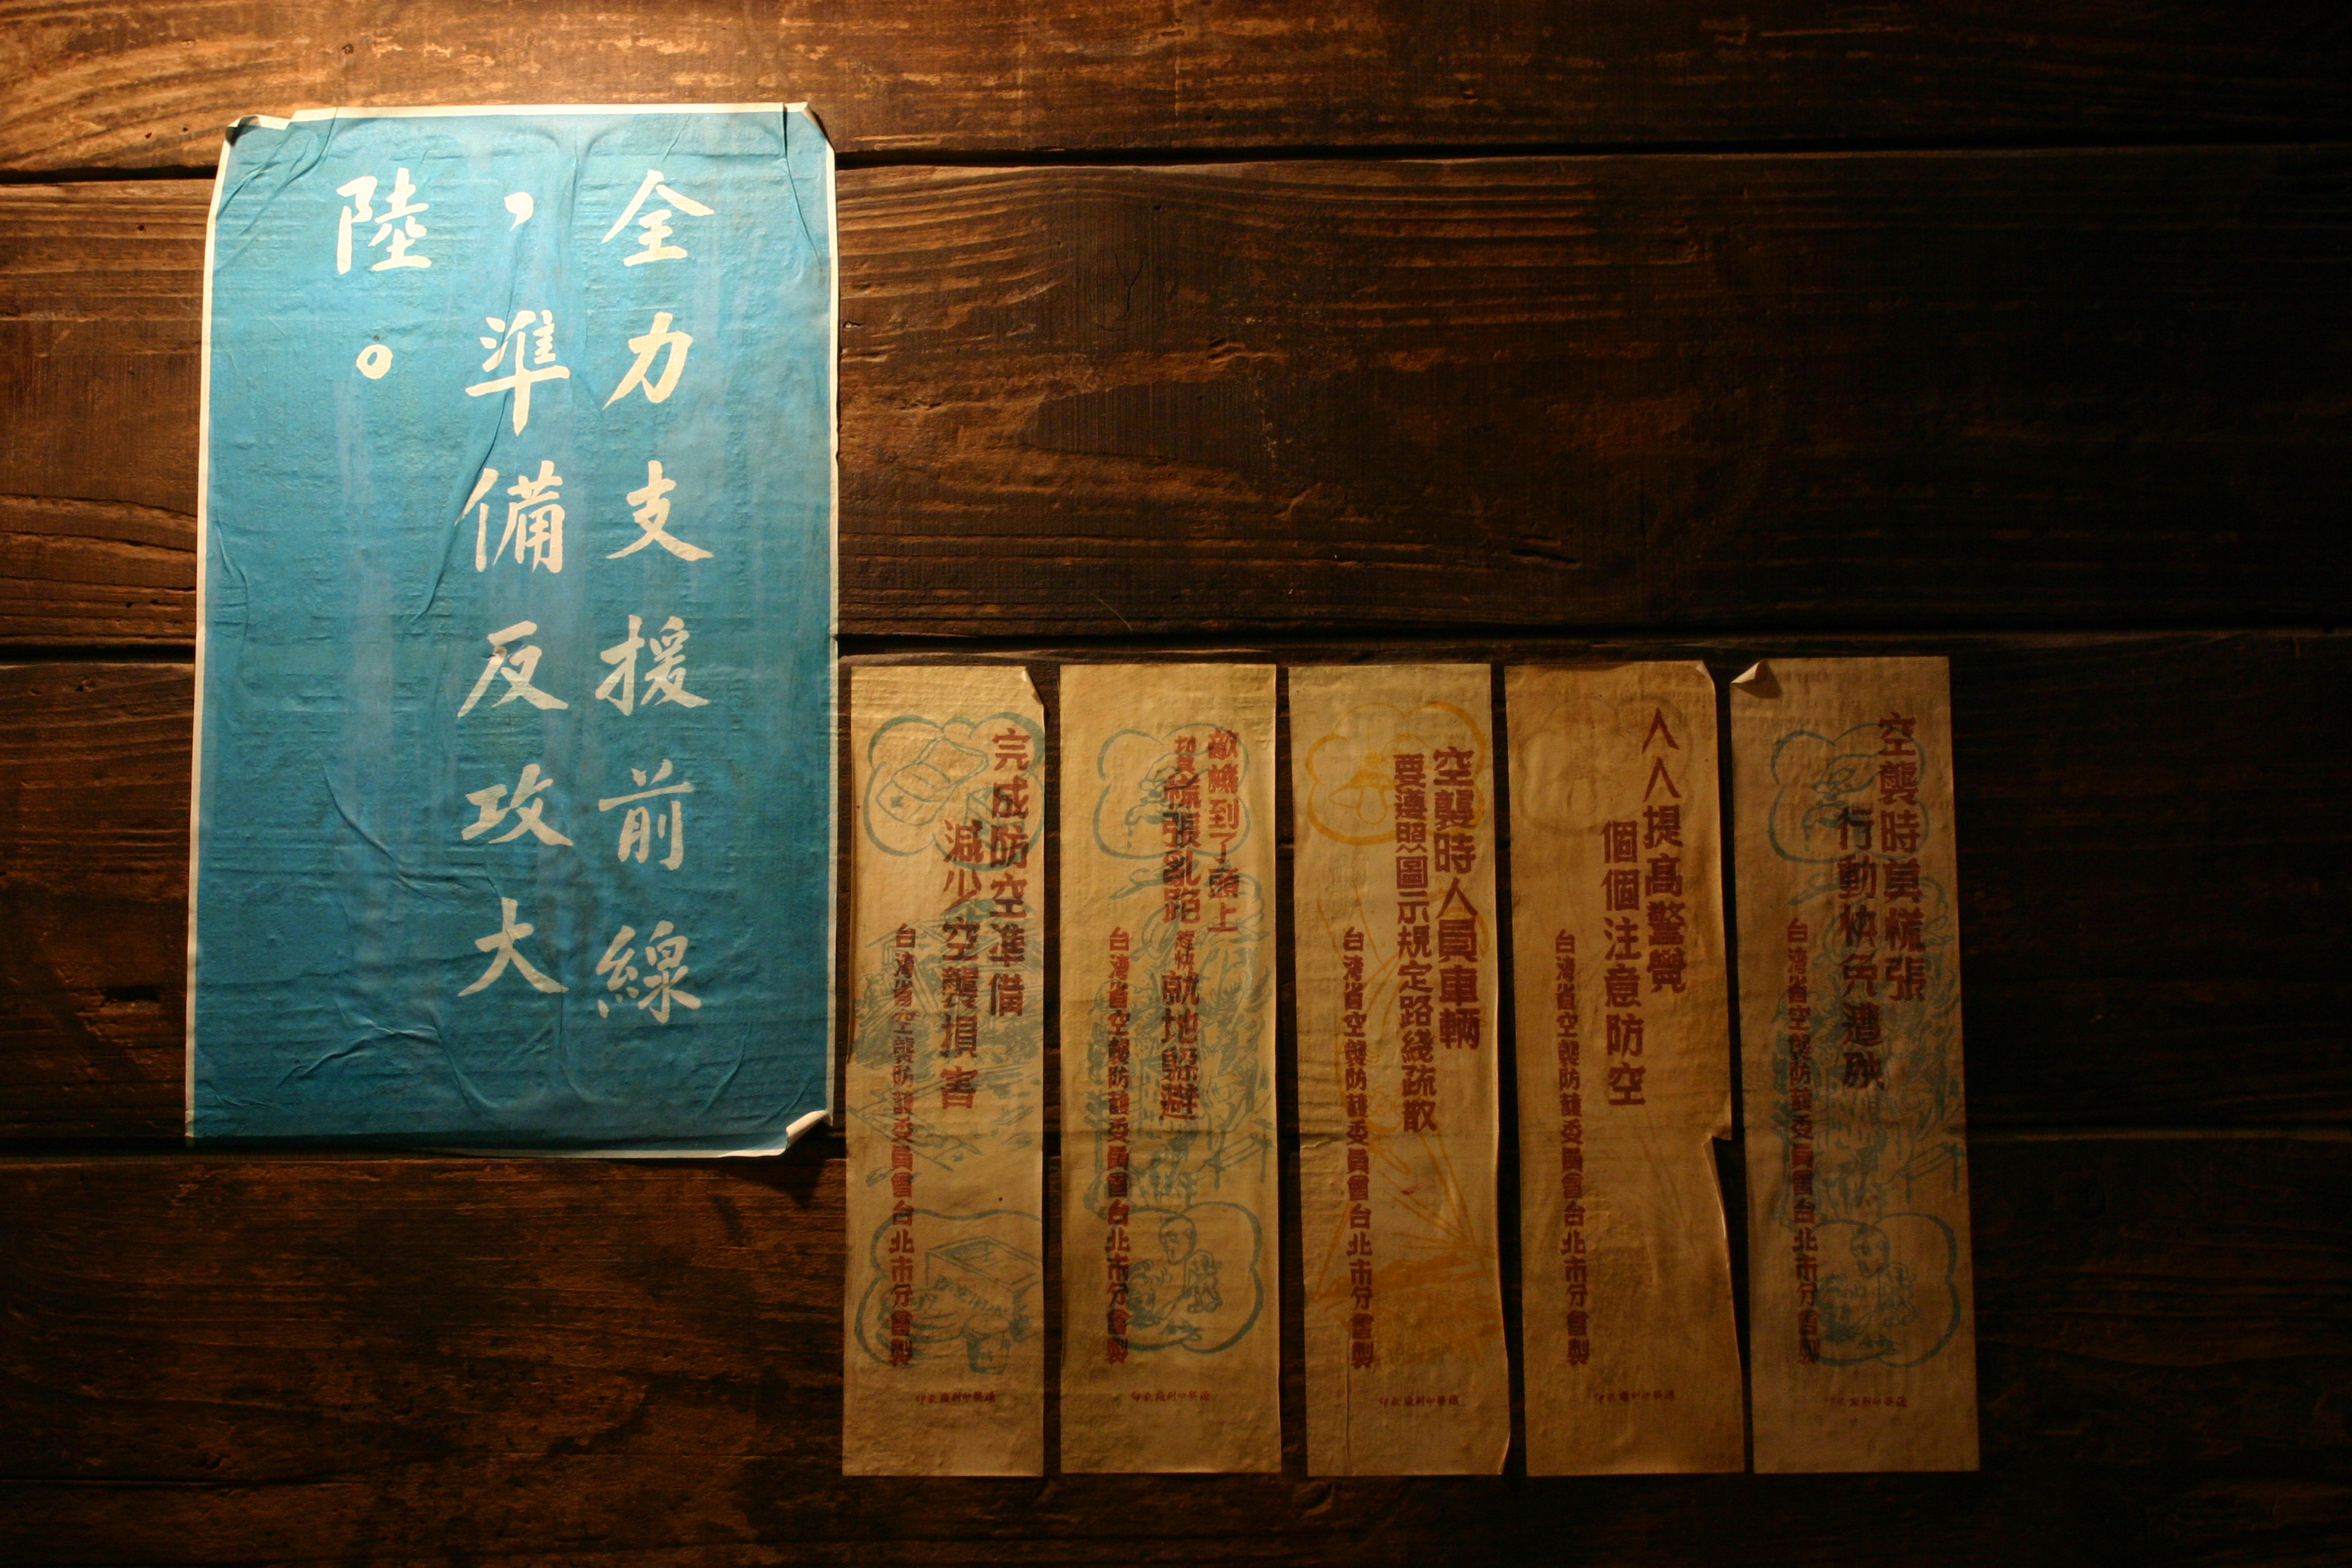 全力支援前線
，準備反攻大
陸。
完成防空准備
減少空襲損害
台湾省空襲防護委員會台北市分會製
印刷廠承印
敵機到了頭上
切莫慌張亂跑趕快就地躲避
台湾省空襲防護委員會台北市分會製
印刷廠承印
空襲時人員車輛
要遵照圖示規定路綫疏散
台湾省空襲防護委員會台北市分會製
印刷廠承印
人人提高警覺
個個注意防空
台湾省空襲防護委員會台北市分會製
印刷廠承印
空襲時莫慌張
行動快免遭殃
台湾省空襲防護委員會台北市分會製
印刷廠承印